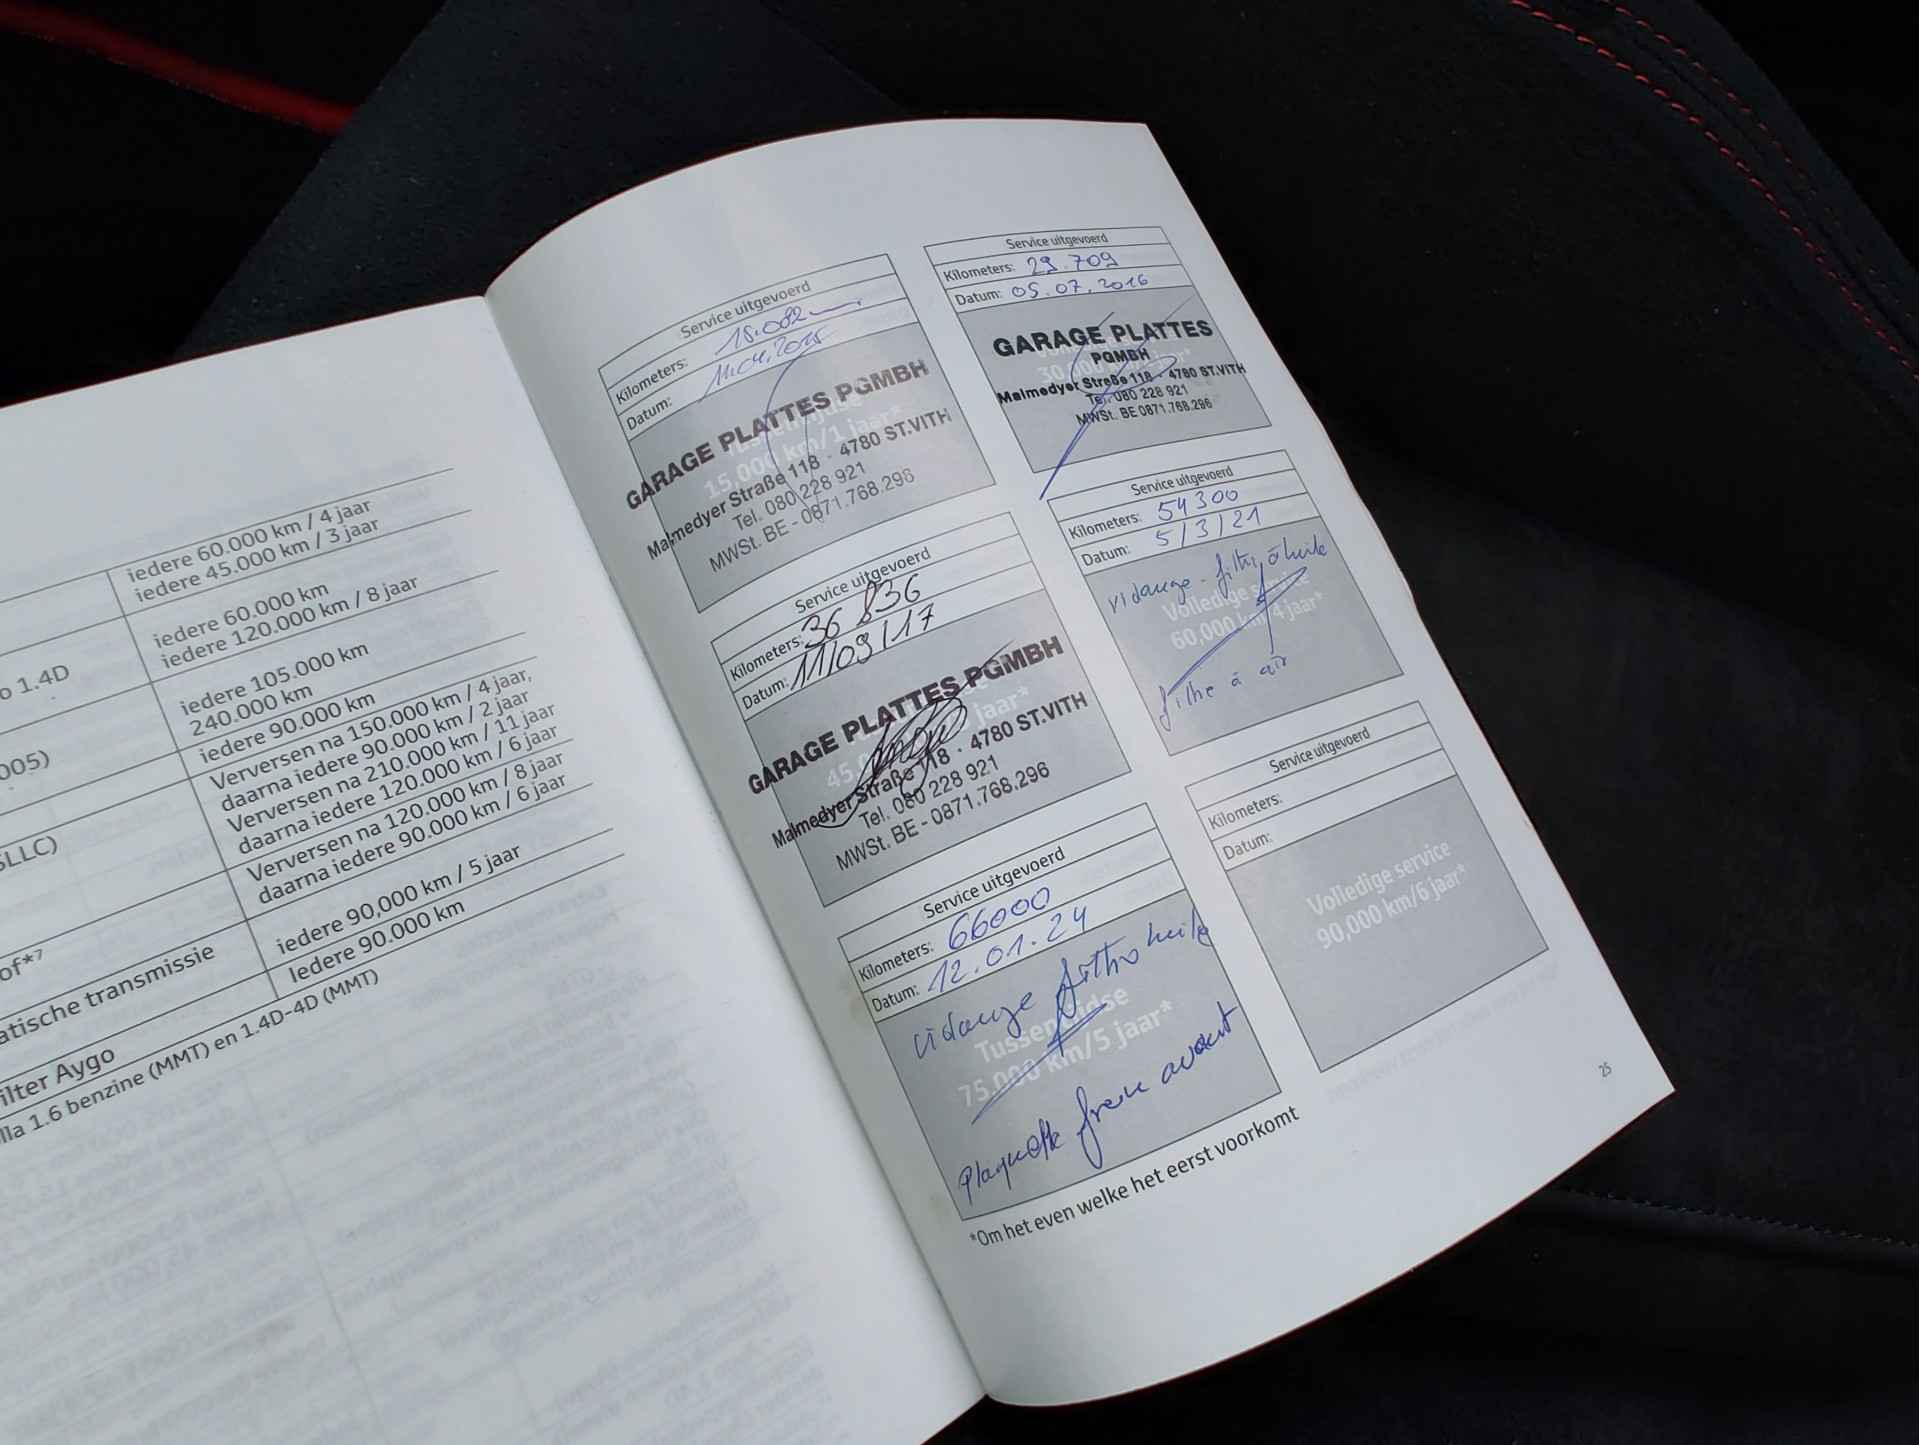 iedere 60.000 km / 4 jaar
iedere 45.000 km / 3 jaar
iedere 60.000 km
iedere 120.000 km / 8 jaar
o 1.4D
iedere 105.000 km
240.000 km
005)
iedere 90.000 km
Verversen na 150.000 km / 4 jaar,
daarna iedere 90.000 km / 2 jaar
Verversen na 210.000 km / 11 jaar
daarna iedere 120.000 km / 6 jaar
SLLC)
Verversen na 120.000 km / 8 jaar
daarna iedere 90.000 km / 6 jaar
of*⁷
iedere 90,000 km / 5 jaar
atische transmissie
Iedere 90.000 km
ilter Aygo
lla 1.6 benzine (MMT) en 1.4D-4D (MMT)
Service uitgevoerd
Kilometers: 15.082
Datum: 11.04.2015
GARAGE PLATTES PGMBH
15,000 km/1 jaar*
Malmedyer Straße 118 · 4780 ST.VITH
Tel. 080 228 921
MWSt. BE - 0871.768.296
Service uitgevoerd
Kilometers: 29.709
Datum: 05.07.2016
GARAGE PLATTES
PGMBH
30,000
Malmedyer Straße 118 · 4780 ST.VITH
Tel. 080 228 921
MWSt. BE 0871.768.296
Service uitgevoerd
Kilometers: 36 836
Datum: 11/09/17
GARAGE PLATTES PGMBH
jaar*
45,0
Malmedyer Straße 118 · 4780 ST.VITH
Tel. 080 228 921
MWSt. BE - 0871.768.296
Service uitgevoerd
Kilometers: 54300
Datum: 5/3/21
vidange - filtre à huile
Volledige service
60,000 km/4 jaar*
filtre à air
Service uitgevoerd
Kilometers: 66000
Datum: 12.01.24
vidange filtre huile
Tussentijdse
75,000 km/5 jaar*
plaquette frein avant
Service uitgevoerd
Kilometers:
Datum:
Volledige service
90,000 km/6 jaar*
*Om het even welke het eerst voorkomt
25